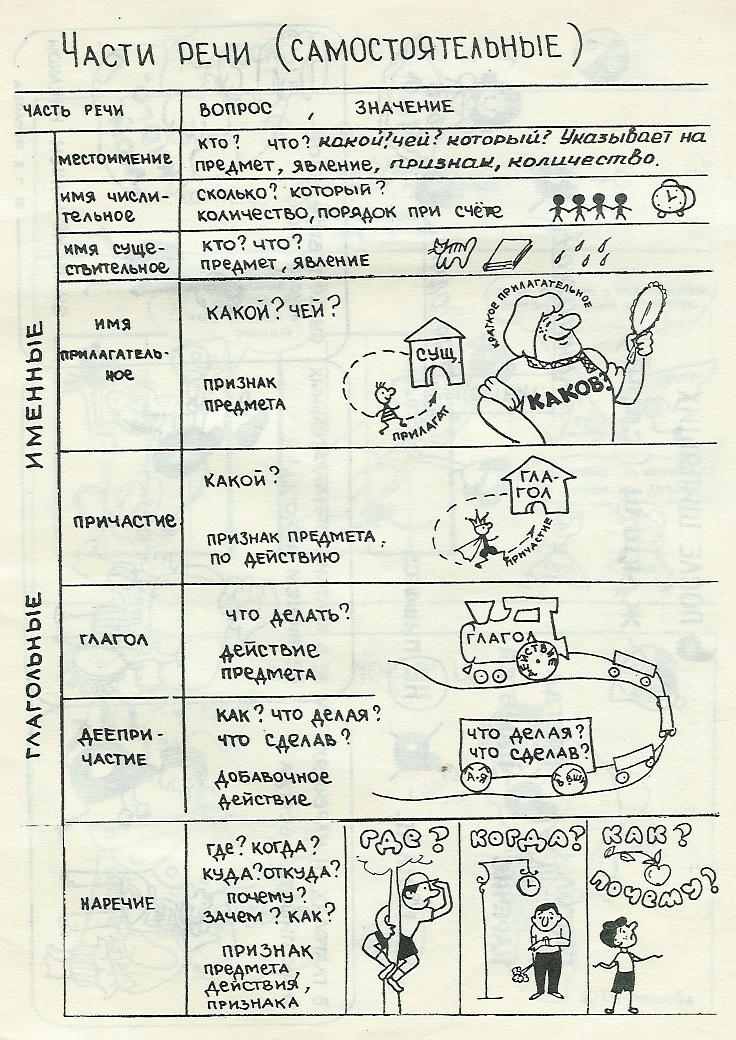 Части речи (самостоятельные)
ЧАСТЬ РЕЧИ ВОПРОС , ЗНАЧЕНИЕ
ИМЕННЫЕ
ГЛАГОЛЬНЫЕ
МЕСТОИМЕНИЕ
КТО? ЧТО? какой? чей? который? Указывает на
ПРЕДМЕТ, ЯВЛЕНИЕ, признак, количество.
ИМЯ ЧИСЛИ-
ТЕЛЬНОЕ
СКОЛЬКО? КОТОРЫЙ?
КОЛИЧЕСТВО, ПОРЯДОК ПРИ СЧЁТЕ
ИМЯ СУЩЕ-
СТВИТЕЛЬНОЕ
КТО? ЧТО?
ПРЕДМЕТ, ЯВЛЕНИЕ
ИМЯ
ПРИЛАГАТЕЛЬ-
НОЕ
КАКОЙ? ЧЕЙ?
ПРИЗНАК
ПРЕДМЕТА
СУЩ.
ПРИЛАГАТ
КРАТКОЕ ПРИЛАГАТЕЛЬНОЕ
КАКОВ?
ПРИЧАСТИЕ
КАКОЙ?
ПРИЗНАК ПРЕДМЕТА
ПО ДЕЙСТВИЮ
ГЛА-
ГОЛ
ПРИЧАСТИЕ
ГЛАГОЛ
ЧТО ДЕЛАТЬ?
ДЕЙСТВИЕ
ПРЕДМЕТА
ГЛАГОЛ
ДЕЙСТВИЕ
ДЕЕПРИ-
ЧАСТИЕ
КАК? ЧТО ДЕЛАЯ?
ЧТО СДЕЛАВ?
ДОБАВОЧНОЕ
ДЕЙСТВИЕ
ЧТО ДЕЛАЯ?
ЧТО СДЕЛАВ?
А-Я
НАРЕЧИЕ
ГДЕ? КОГДА?
КУДА? ОТКУДА?
ПОЧЕМУ?
ЗАЧЕМ? КАК?
ПРИЗНАК
ПРЕДМЕТА,
ДЕЙСТВИЯ,
ПРИЗНАКА
ГДЕ?
КОГДА?
КАК?
ПОЧЕМУ?